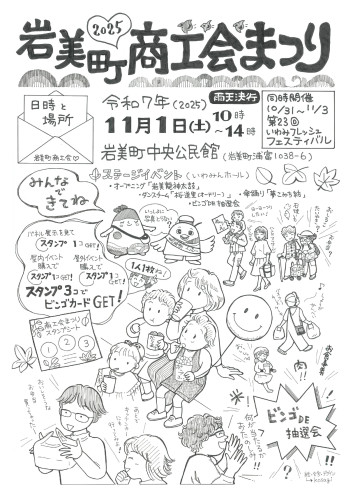 2025
岩美町商工会まつり
日時と
場所
岩美町商工会
令和7年(2025)
雨天決行
11月1日(土)
10時
～14時
岩美町中央公民館(岩美町浦富1038-6)
同時開催
10/31～11/3
第23回
いわみフレッシュ
フェスティバル
ステージイベント(いわみんホール)
・オープニング「岩美龍神太鼓」
・ビンゴDE抽選会
みんな
できてね
いっしょに
パネル展示を見て
スタンプ1コGET!
屋内イベント
購入で
スタンプ1コGET!
屋外イベント
購入で
スタンプ1コGET!
スタンプ3コで
ビンゴカードGET!
1人1枚ね!
商工会まつり
スタンプシート
1
2
3
何が
当たるの
ビンゴDE
抽選会